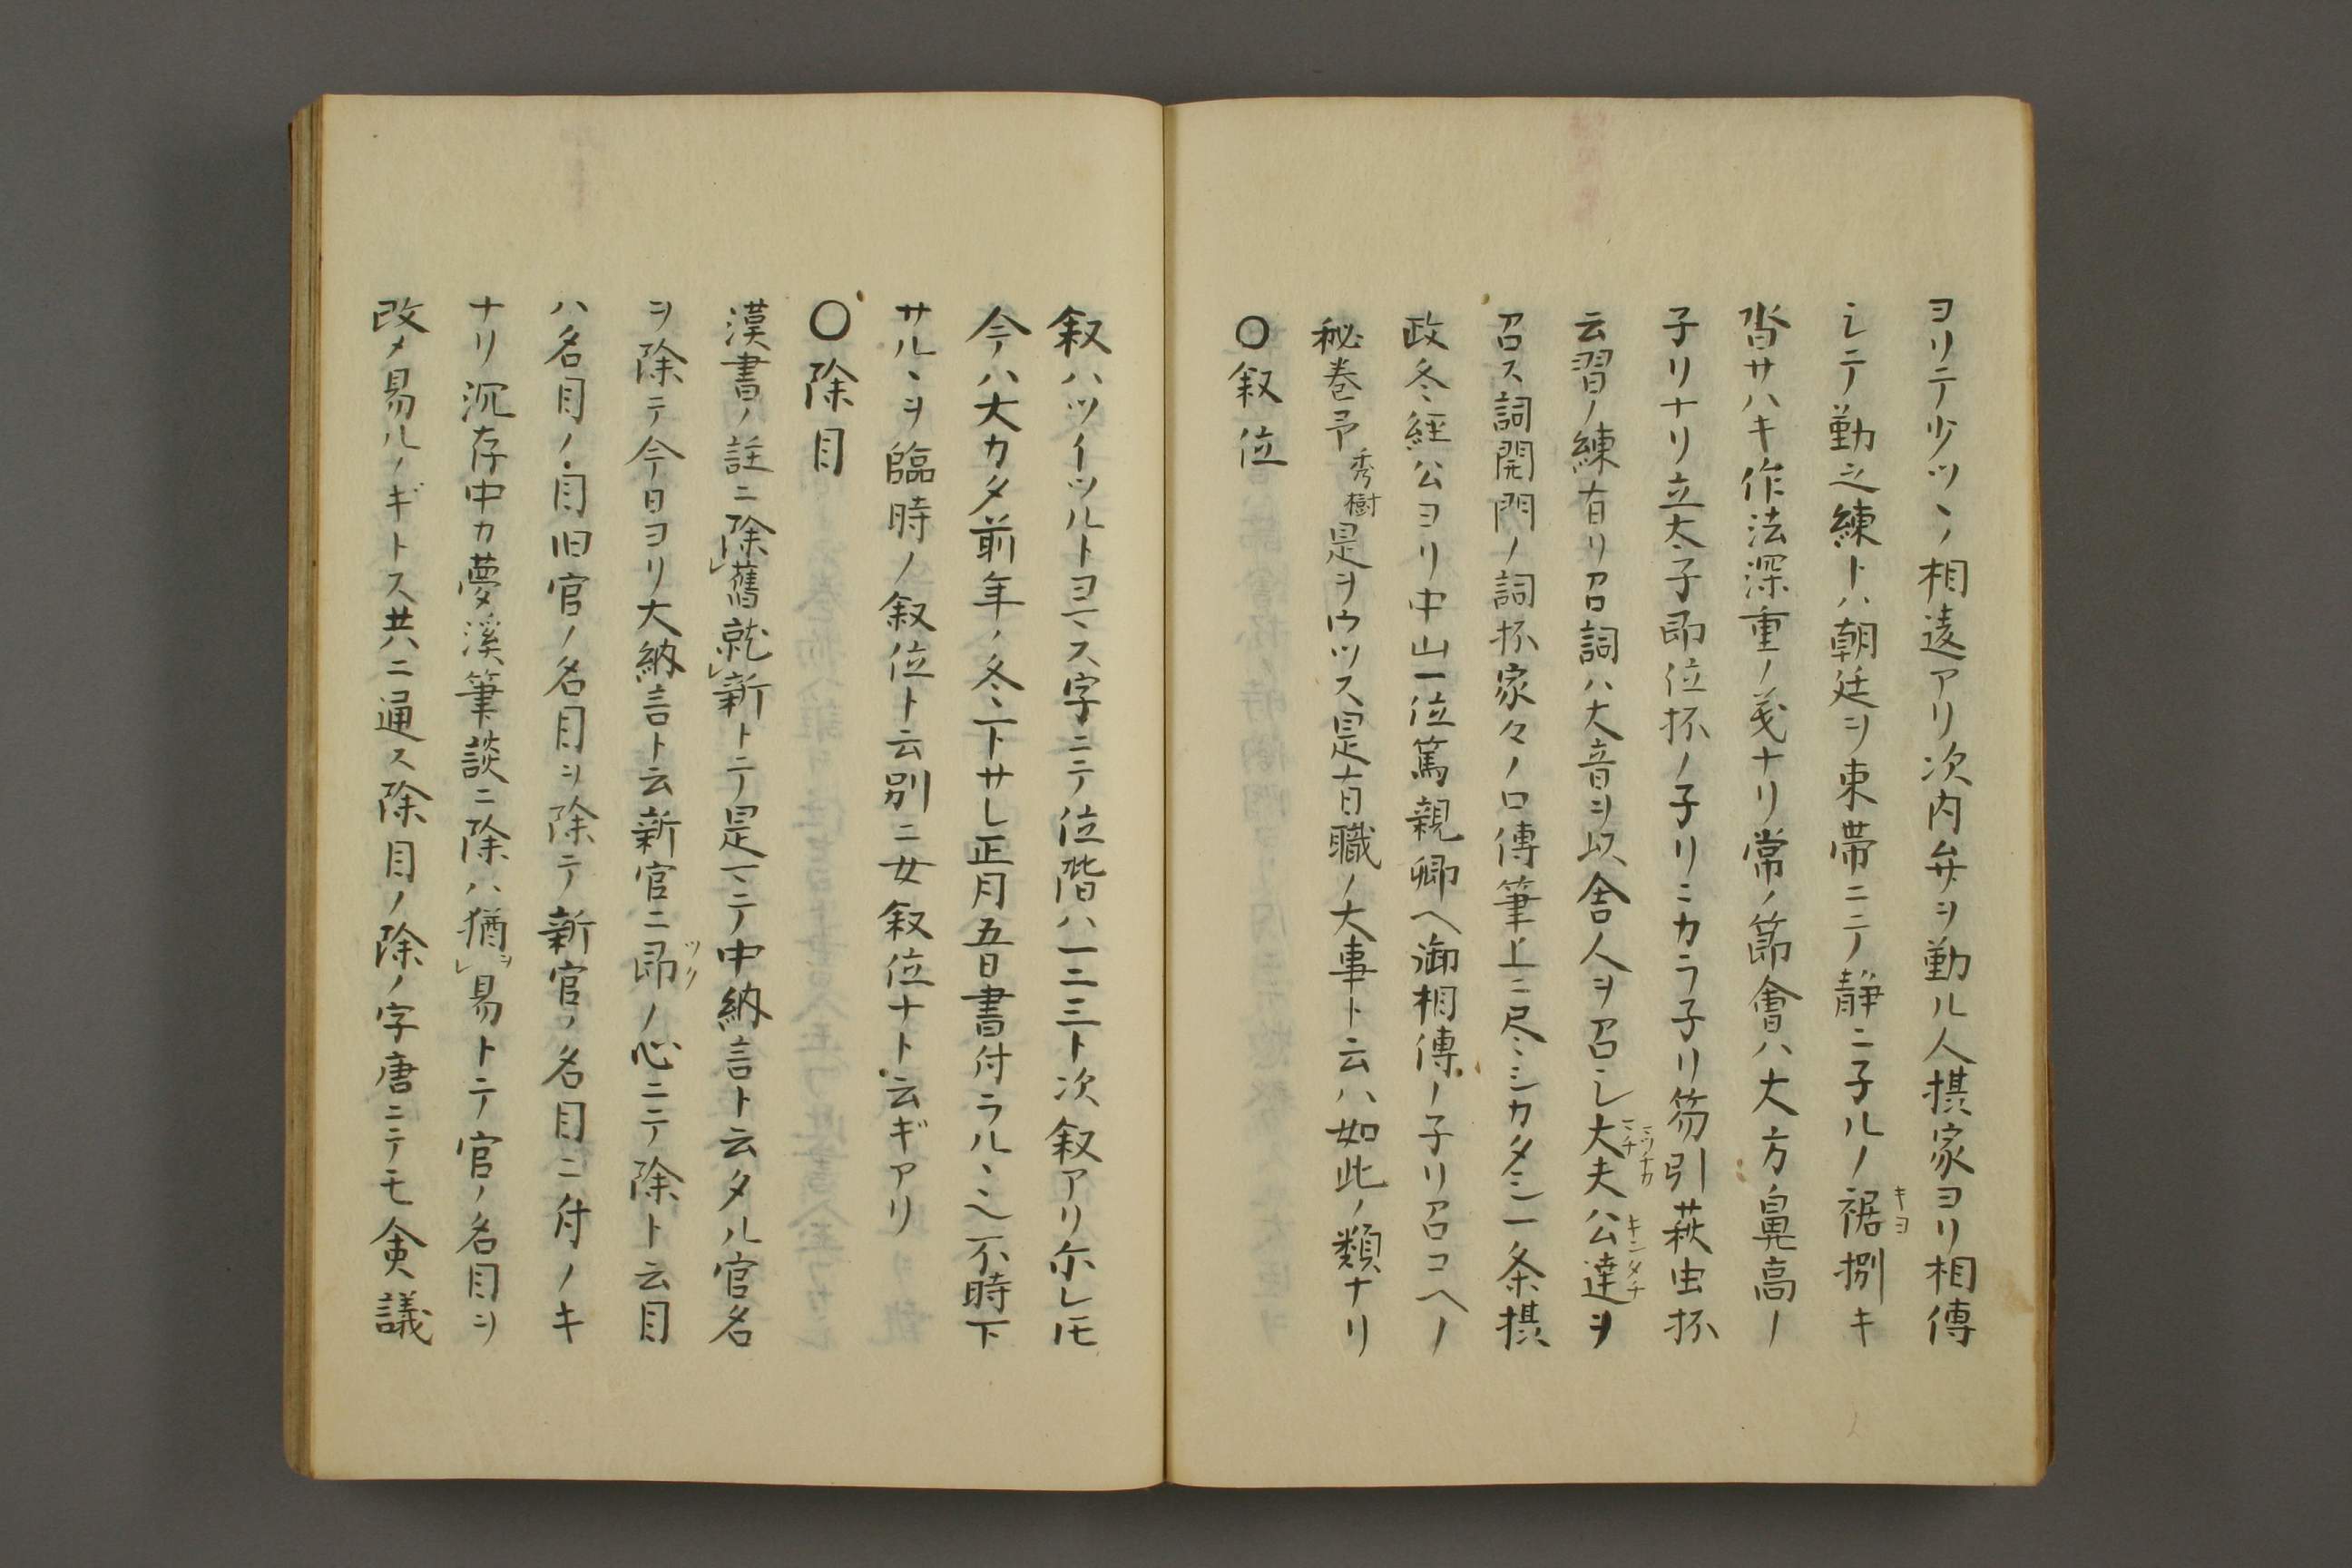 ヨリテ少ツヽノ相違アリ次内弁ヲ勤ル人摂家ヨリ相傳
シテ勤之練トハ朝廷ヲ束帯ニテ静ニ子ルノ裾捌キ
キヨ
沓サハキ作法深重ノ義ナリ常ノ節會ハ大方鼻高ノ
子リナリ立太子即位抔ノ子リニカラ子リ笏引萩虫抔
云習ノ練有リ召詞ハ大音ヲ以舎人ヲ召シ大夫ハ公達ヲ
キンタチ
召ス詞開門ノ詞抔家々ノ口傳筆上ニ尽シカタシ一条摂
政冬経公ヨリ中山一位篤親卿ヘ御相傳ノ子リ召コヘノ
秘巻予秀樹是ヲウツス是有職ノ大事ト云ハ如此ノ類ナリ
〇叙位
叙ハツイツルトヨマス字ニテ位階ハ一二三ト次叙アリ尓レ𪜈
今ハ大カタ前年ノ冬下サレ正月五日書付ラルヽ也不時下
サルヽヲ臨時ノ叙位ト云別ニ女叙位ナト云ギアリ
〇除目
漢書ノ註ニ除レ舊就レ新トテ是マテ中納言ト云タル官名
ヲ除テ今日ヨリ大納言ト云新官ニ即ノ心ニテ除ト云目
ツク
ハ名目ノ目旧官ノ名目ヲ除テ新官ノ名目ニ付ノキ
ナリ沉存中カ夢溪筆談ニ除ハ猶ヲレ易トテ官ノ名目ヲ
改メ易ルノギトス共ニ通ス除目ノ除ノ字唐ニテモ僉議